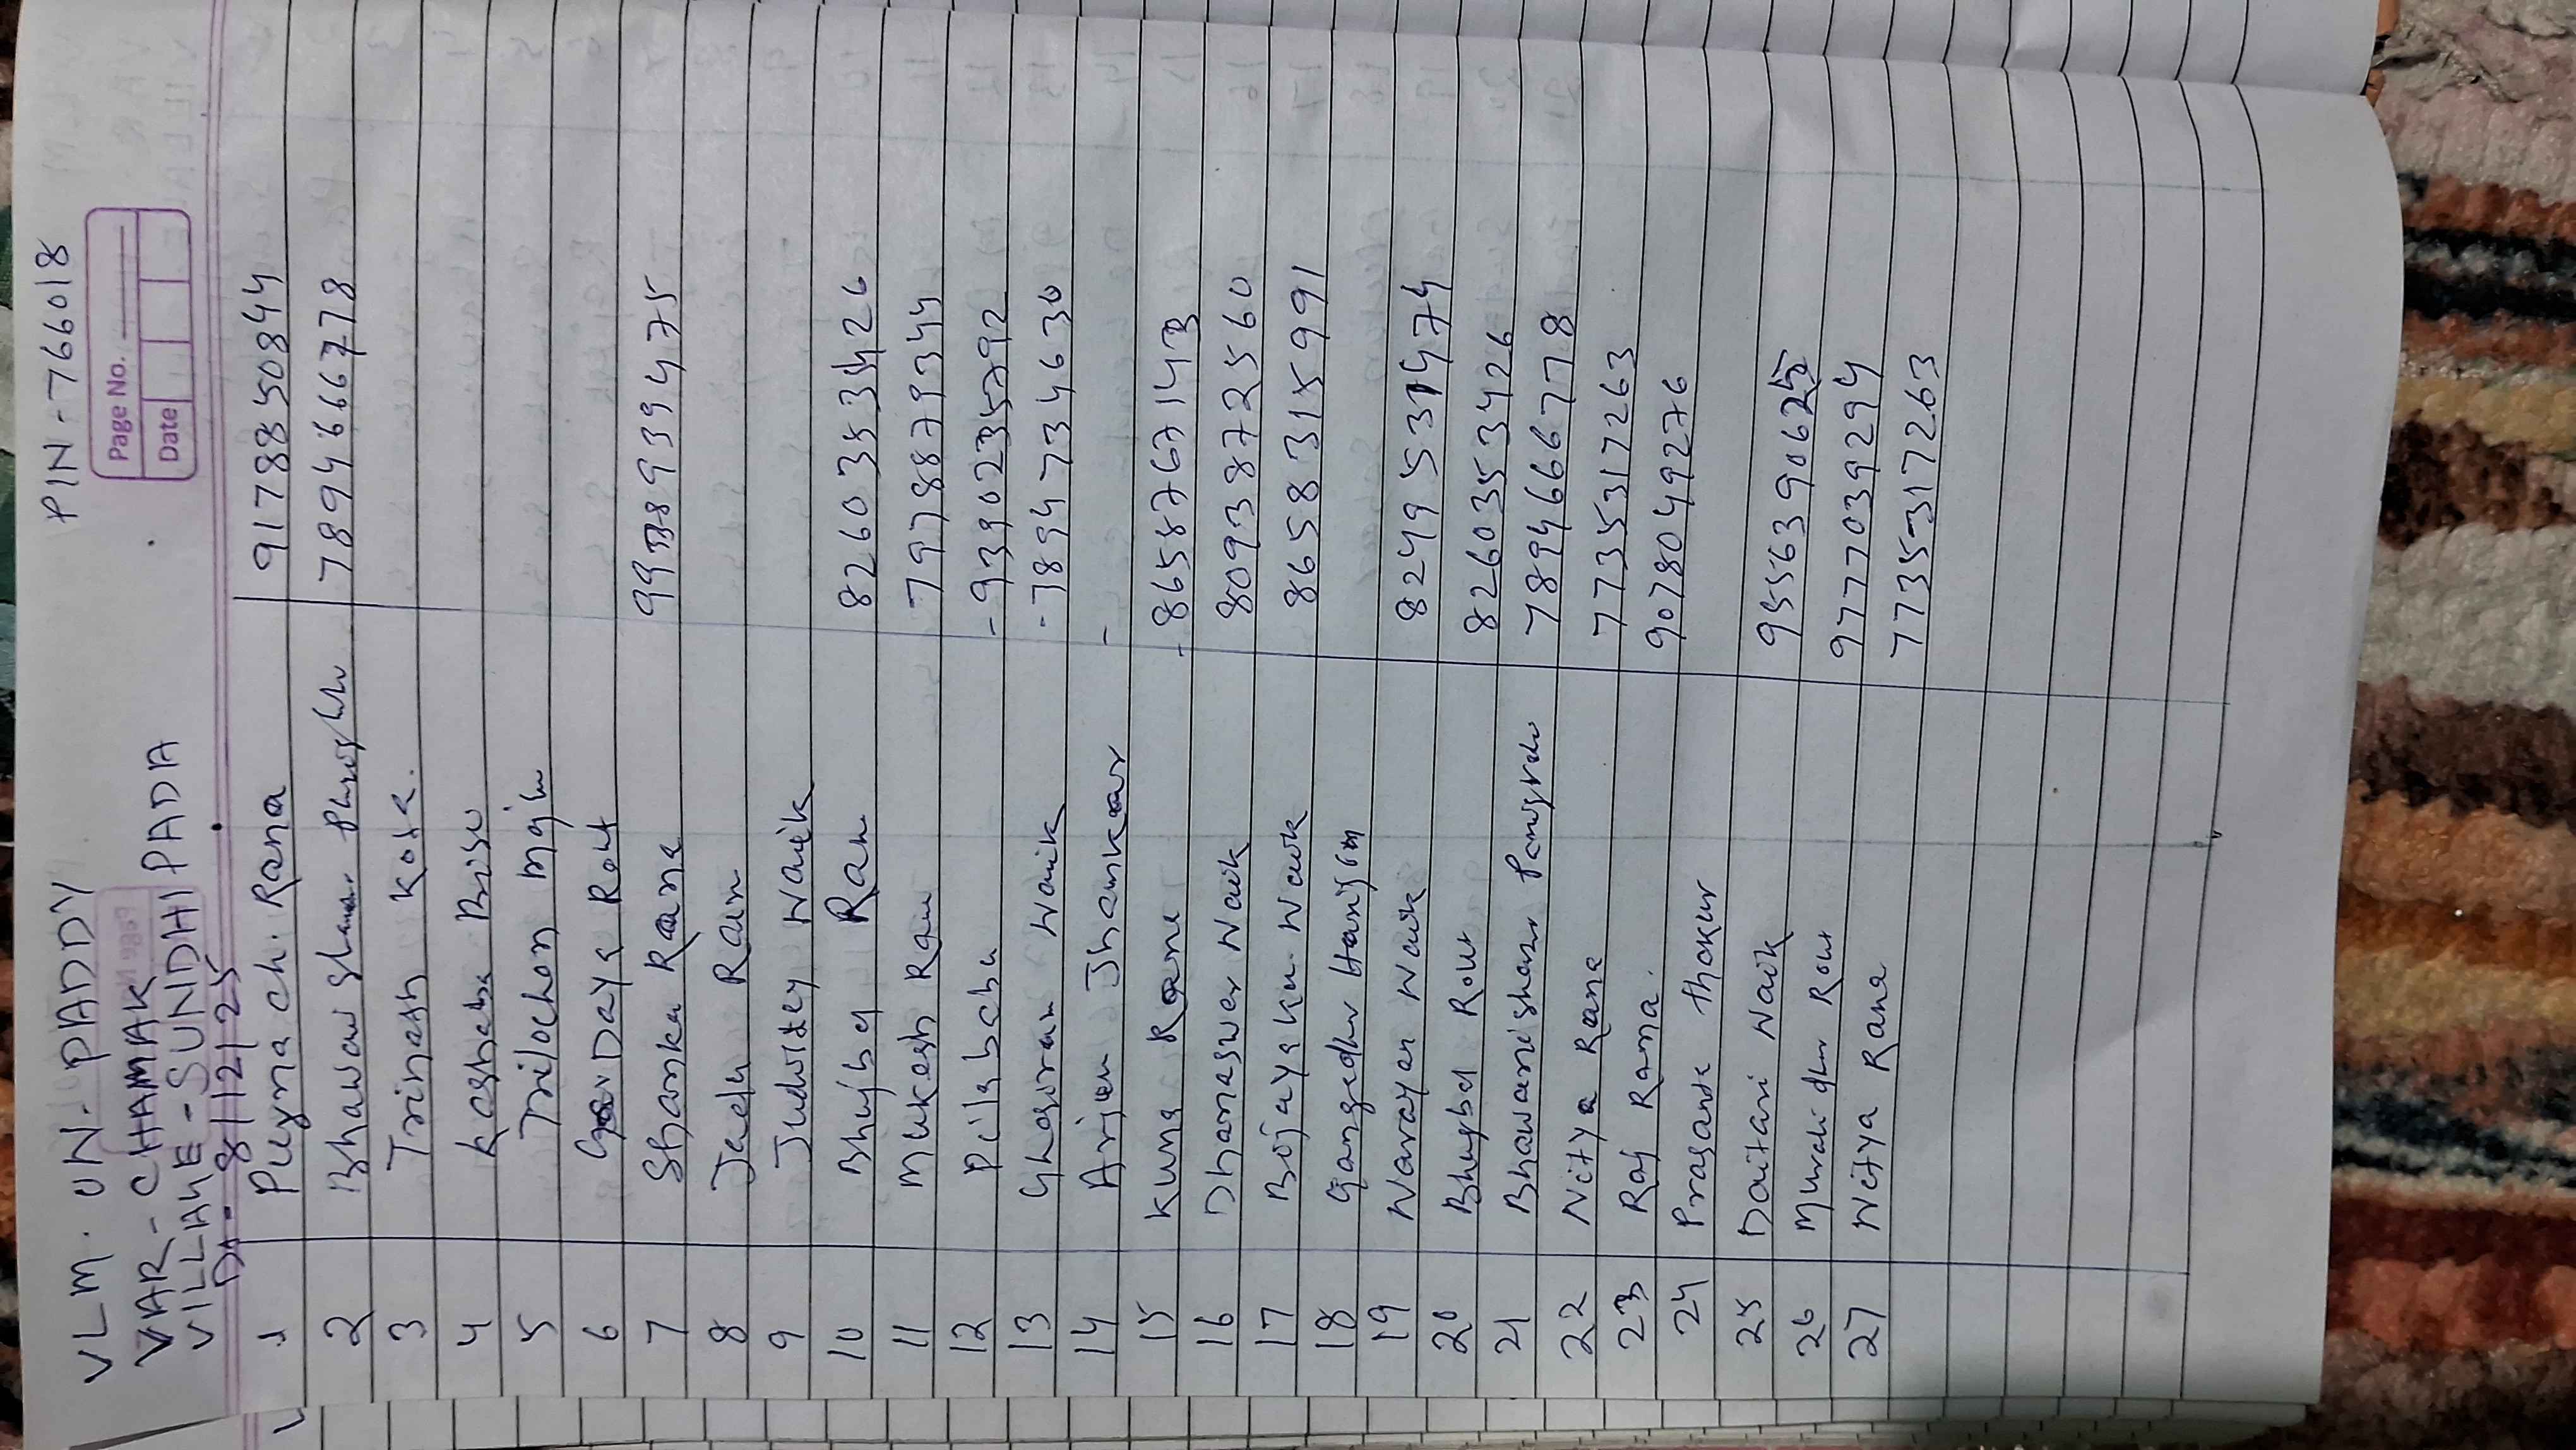 VLM. ON. PADDY PIN-766018
VAR-CHAMAK
VILLAGE-SUNDHIPADA
Page No.
Date
Dt-8/12/25
1 Puyna ch. Rana 9178850844
2 Bhawanishankar 7894666778
3 Trinath Kota.
4 Keshaba Bisu
5 Trilochan majhi
6 Daya Rout
7 Shanka Rana 8939 4475
8 Jadu Rana
9 Judhistey Naik
10 Bhujbal Rana 8260353426
11 Mukesh Rana 7978879344
12 Pilababu
13 Ghasiram Naik -7894734630
14 Arjun Jhankar -
15 Kuna Rana -8658767143
16 Dhanaswer Naik 8093872560
17 Bijaya Ku. Naik 8658315991
18 Gangadhar Harijan
19 Narayan Naik
20 Bhujbal Rout 8260353426
21 Bhawanishankar Panigrahi 7894666778
22 Nitya Rana 7735317263
23 Raj Rana. 9078049276
24 Prasanta thakur
25 Daitari Naik 9556390625
26 Muralidhar Rout 9777039294
27 Nitya Rana 7735317263